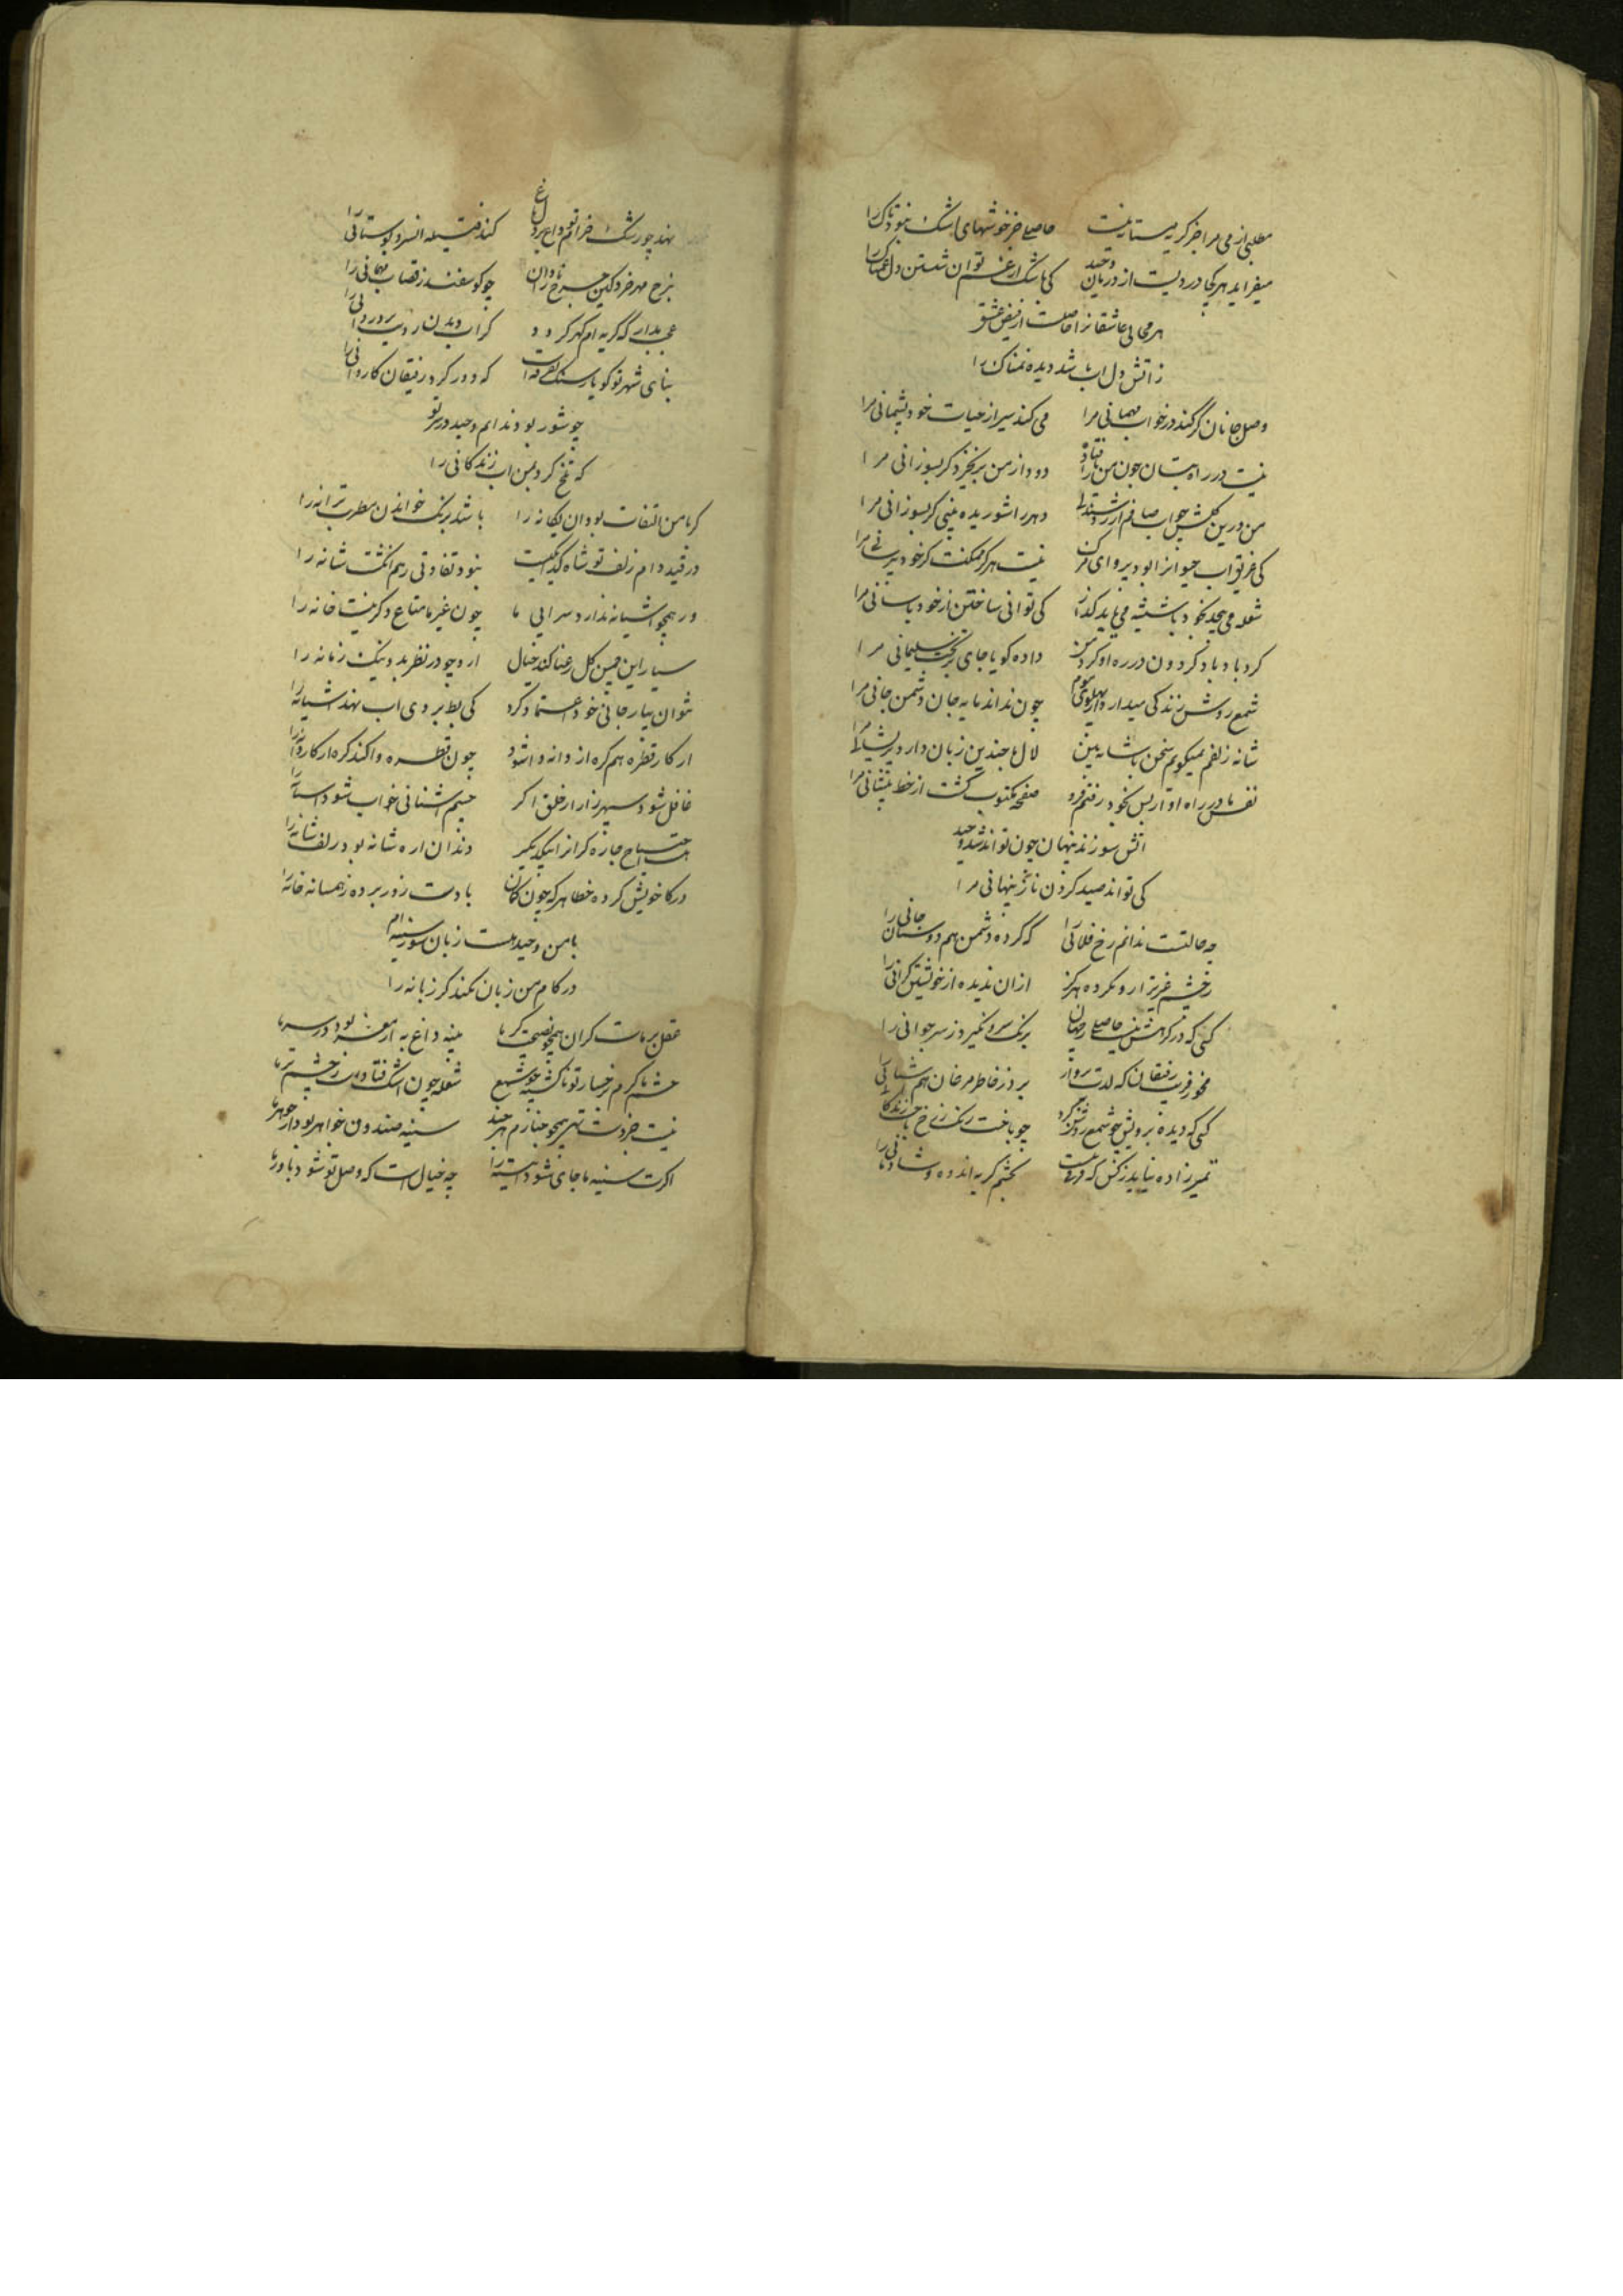 مطلبی از می مرا جز گریه مستانه نیست حاصلی جز خوشهای اشک نبود تاک را
میفزاید هر کجا دردیست از درمان وحید کی باشک از غم توان شستن دل غمناک را
هر محالی عاشقانرا حاصلست از فیض عشق
ز آتش دل آب باشد دیده نمناک را
وصل جانان گر کند در خواب مهمانی مرا می کند سیر از حیات خود پشیمانی مرا
نیست در راه بتان چون من ز پا افتاده دود از من برنخیزد گر بسوزانی مرا
من درین گلشن چو آب صافم از
کی غریق آب حیوانرا بود پروای مرگ نیست هرگز ممکنت کز خود برانی مرا
شعله می پیچد بخود با شیشه می باید گداز کی توانی ساختن از خود باسانی مرا
گردباد باد گردون در ره او گرد من داده گویا جای بر تخت سلیمانی مرا
شمع روشن زندگی میدارد از پهلوی موم چون نداند مایه جان دشمن جانی مرا
شانه زلفم نمیگویم سخن باشانه بین لال با چندین زبان دارد پریشانی مرا
نقش پا در راه او از بس بخود رفتم فرو صفحه مکتوب گشت از خط پیشانی مرا
آتش سوزنده پنهان چون تواند شد وحید
کی تواند صید کردن ناز پنهانی مرا
چه حالتست ندانم رخ فلانی را که کرده دشمن هم دوستان جانی را
ز چشم عزیزتر او نکرده هرگز از آن ندیده از خویشتن گرانی را
کسی که در گرهش نیست حاصلی ز جهان برنگ سرو نگیرد ز سر جوانی را
مخور فریب رفیقان که لذت پرواز برد ز خاطر مرغان هم آشیانی را
کسی که دیده برویش چو شمع روشن کرد چو باخت رنگ ز رخ باخت زندگانی را
تمیز زاده نیاید ز کس که فرقی نیست بچشم گریه اندوه و شادمانی را
نهد چو رشک خرامت بدل داغ کند فتیله افسرد بوستانی را
بنرخ مهر خرد کین چرخ را نادان چو گوسفند ز قصاب مهربانی را
عجب مدار که گریه ام گهر گردد
بنای شهر تو گویا ز سنگ تفرقه است که دور کرد رفیقان کاروانی را
چو شور بود ندانم وحید در سر تو
که تلخ کرد بمن آب زندگانی را
گر با من التفات بود آن یگانه را باشد برنگ خواندن مطرب ترانه را
در قید دام زلف تو شاه و گدا یکیست نبود تفاوتی ز هم انگشت شانه را
در همچو آشیانه ندارد سرای ما چون غیر ما متاع دگر نیست خانه را
سیار این چمن گل رعنا کند خیال از دیده چو در نظر بد و نیک زمانه را
نتوان بیار جانی خود اعتماد کرد کی بط بروی آب نهد آشیانه را
از کار قطره هم گره از دانه وا شود چون قطره وا کند گره از کار دانه را
غافل شود سپهر ز آزار خلق اگر چشم آشنای خواب شود آستانه را
احتیاج چاره گر آنرا بیکدیگر دندان اره شانه بود زلف شانه را
در کار خویش کرده خطا هر که چون کمان با دست زور برده ز همسایه خانه را
با من وحید هست زبان سوز سینه ام
در کام من زبان نکند گر زبانه را
عقل بر ماست گران همچو نصیحت گر ما پنبه داغ به از مغز بود در سر ما
چشم ما گرم ز رخسار تو تا گشته چو شمع شعله چون اشک فتادست ز چشم تر ما
نیست جز دست تهی همچو چنارم هر چند سینه صندوق جواهر بود از جوهر ما
اگرت سینه ما جای شود آینه را چه خیال است که وصل تو شود باور ما